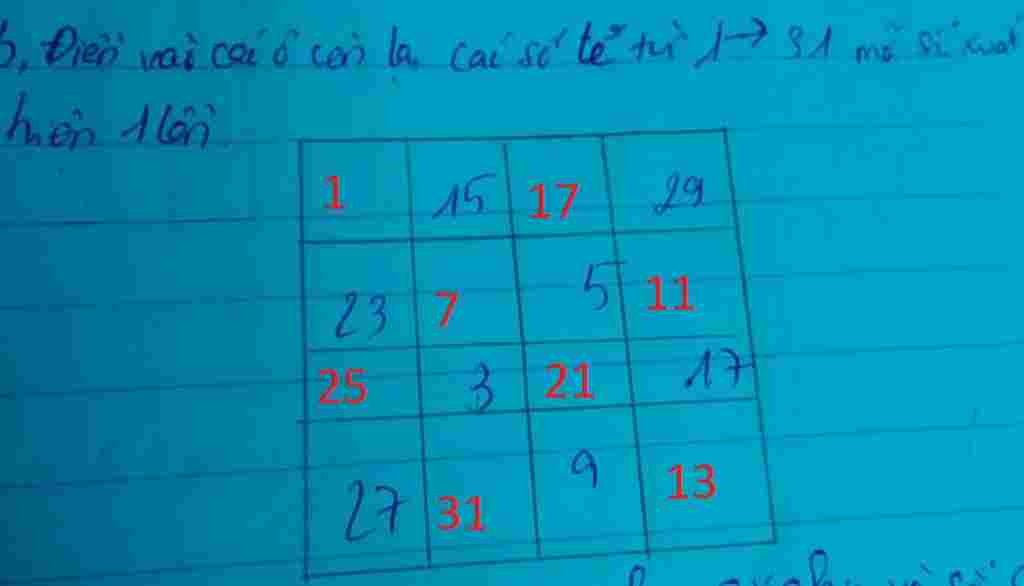 b, Điền vài cái ô còn lại các số lẻ từ 1 → 31 mỗi số xuất
hiện 1 lần
1 15 17 29
23 7 5 11
25 3 21 17
27 31 9 13